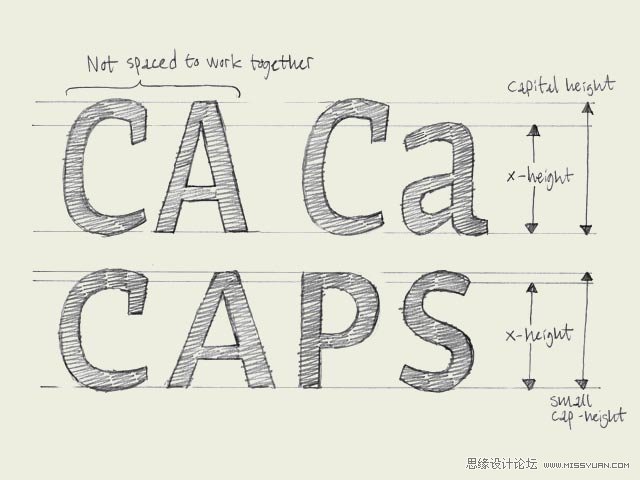 Not spaced to work together
Capital height
CA Ca
x-height
CAPS
x-height
small
cap-height
思缘设计论坛 WWW.MISSYUAN.COM